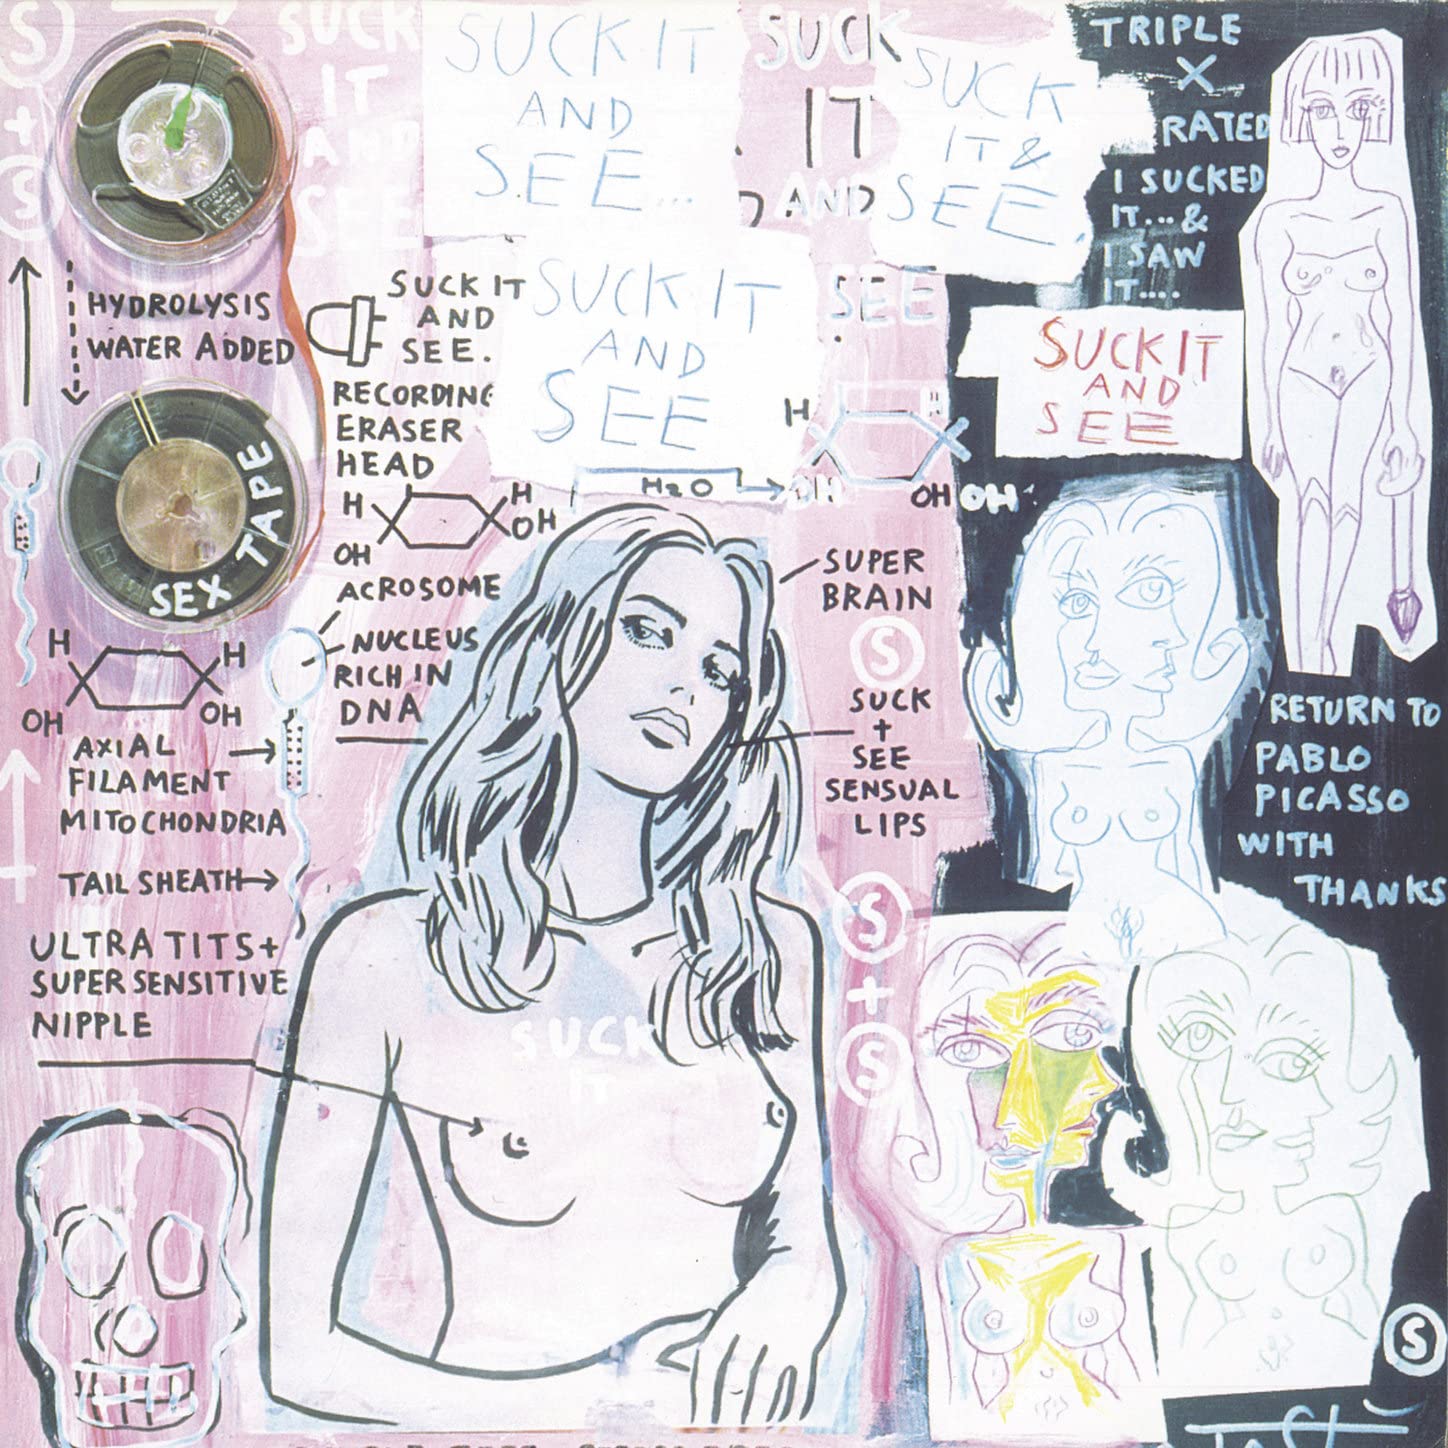 S
+
S
SUCK
IT
AND
SEE
SUCK IT
AND
SEE...
SUCK
IT
AND
SEE
SUCK
IT &
SEE.
TRIPLE
X
RATED
I SUCKED
IT...&
I SAW
IT....
HYDROLYSIS
WATER ADDED
SUCK IT
AND
SEE.
RECORDING
ERASER
HEAD
SUCK IT
AND
SEE
SUCK IT
AND
SEE
SEX TAPE
H2O
H
H
OH
OH
OH
H
H
OH
OH
ACROSOME
NUCLEUS
RICH IN
DNA
SUPER
BRAIN
S
SUCK
+
SEE
SENSUAL
LIPS
H
H
OH
OH
AXIAL
FILAMENT
MITOCHONDRIA
TAIL SHEATH
ULTRA TITS +
SUPER SENSITIVE
NIPPLE
RETURN TO
PABLO
PICASSO
WITH
THANKS
S
+
S
SUCK
IT
S